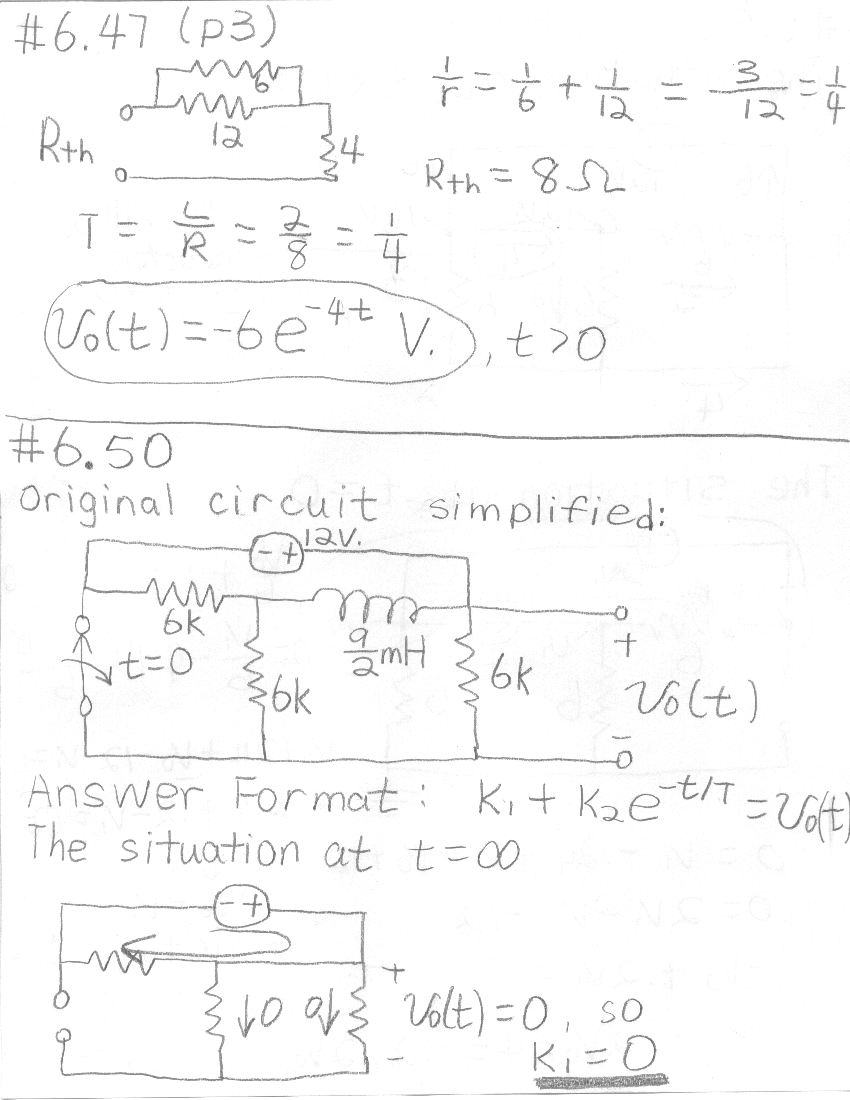 #6.47 (p3)
6
12
Rth
4
1/r = 1/6 + 1/12 = 3/12 = 1/4
Rth = 8 Ω
T = L/R = 2/8 = 1/4
v₀(t) = -6e^-4t V. , t>0
#6.50
Original circuit simplified:
- + 12V.
6k
9/2 mH
t=0
6k
6k
+
v₀(t)
-
Answer Format: K₁ + K₂e^-t/T = v₀(t)
The situation at t=∞
- +
↓0 0↓
+
v₀(t) = 0, so
-
K₁ = 0